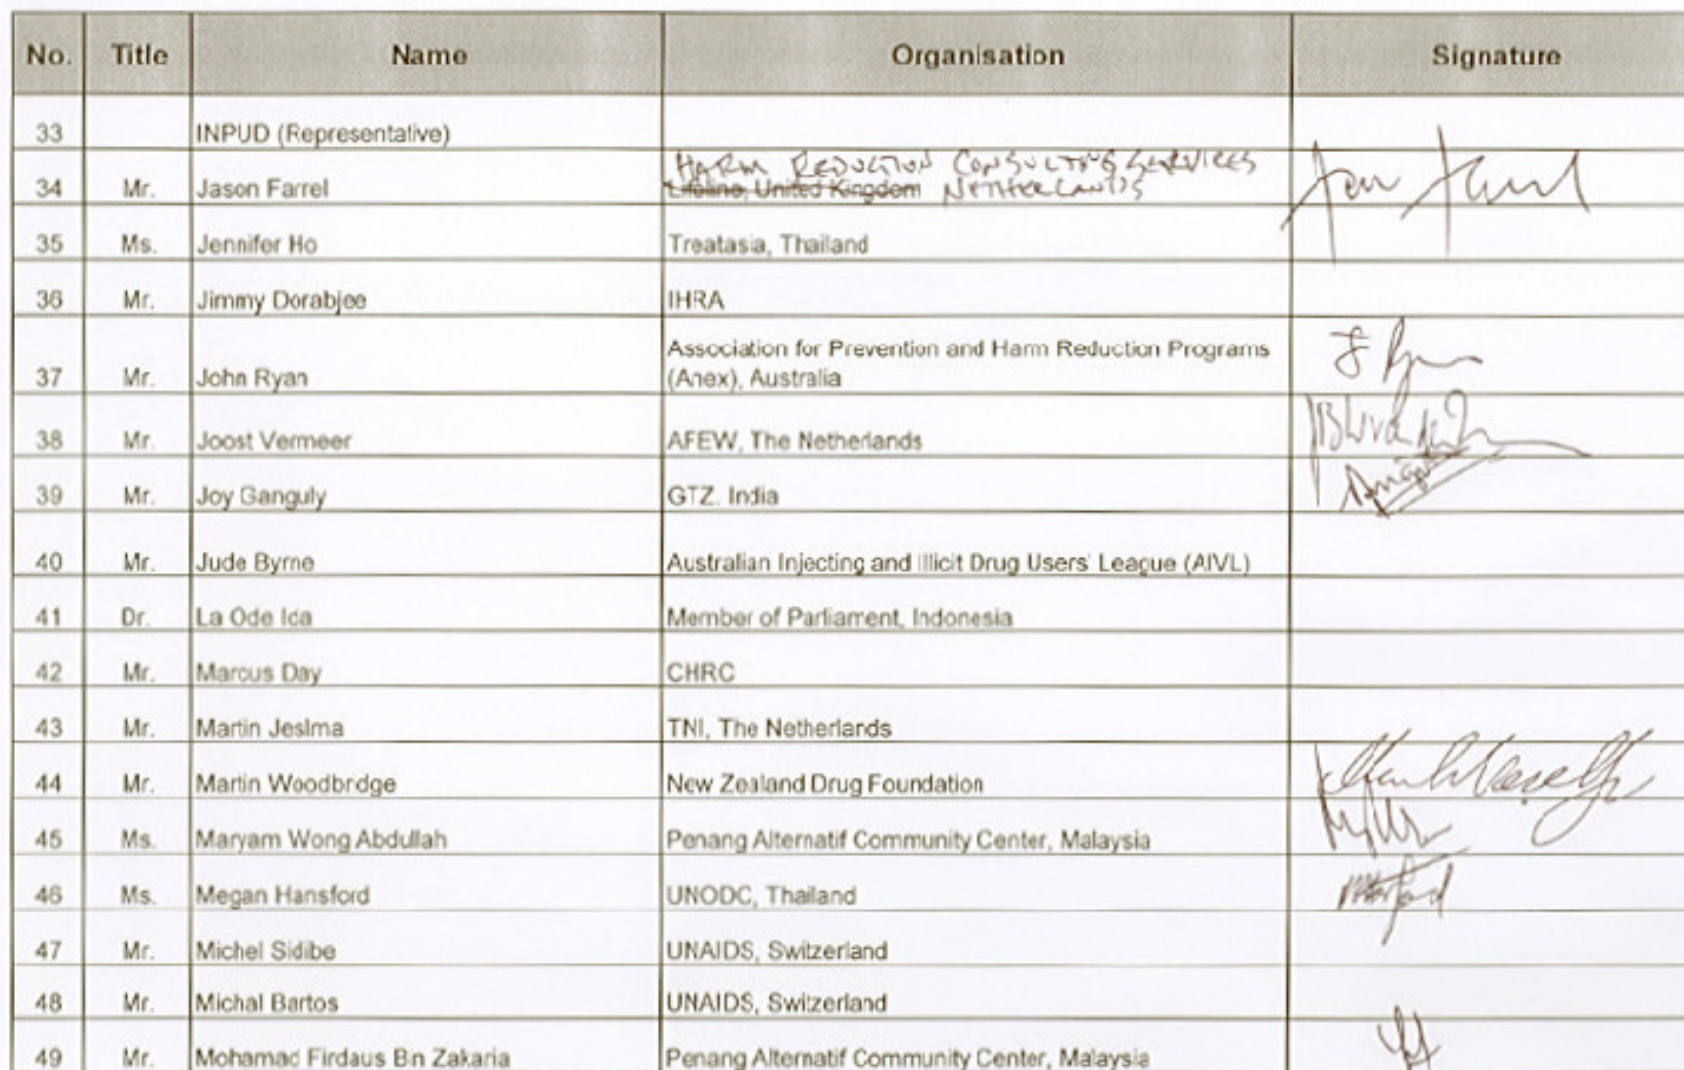 No. Title Name Organisation Signature
33 INPUD (Representative)
HARM REDUCTION CONSULTING SERVICES
34 Mr. Jason Farrel Lifeline, United Kingdom NETHERLANDS
35 Ms. Jennifer Ho Treatasia, Thailand
36 Mr. Jimmy Dorabjee IHRA
Association for Prevention and Harm Reduction Programs
37 Mr. John Ryan (Anex), Australia
38 Mr. Joost Vermeer AFEW, The Netherlands
39 Mr. Joy Ganguly GTZ. India
40 Mr. Jude Byrne Australian Injecting and Illicit Drug Users' League (AIVL)
41 Dr. La Ode Ida Member of Parliament, Indonesia
42 Mr. Marcus Day CHRC
43 Mr. Martin Jeslma TNI, The Netherlands
44 Mr. Martin Woodbridge New Zealand Drug Foundation
45 Ms. Maryam Wong Abdullah Penang Alternatif Community Center, Malaysia
46 Ms. Megan Hansford UNODC, Thailand
47 Mr. Michel Sidibe UNAIDS, Switzerland
48 Mr. Michal Bartos UNAIDS, Switzerland
49 Mr. Mohamad Firdaus Bin Zakaria Penang Alternatif Community Center, Malaysia